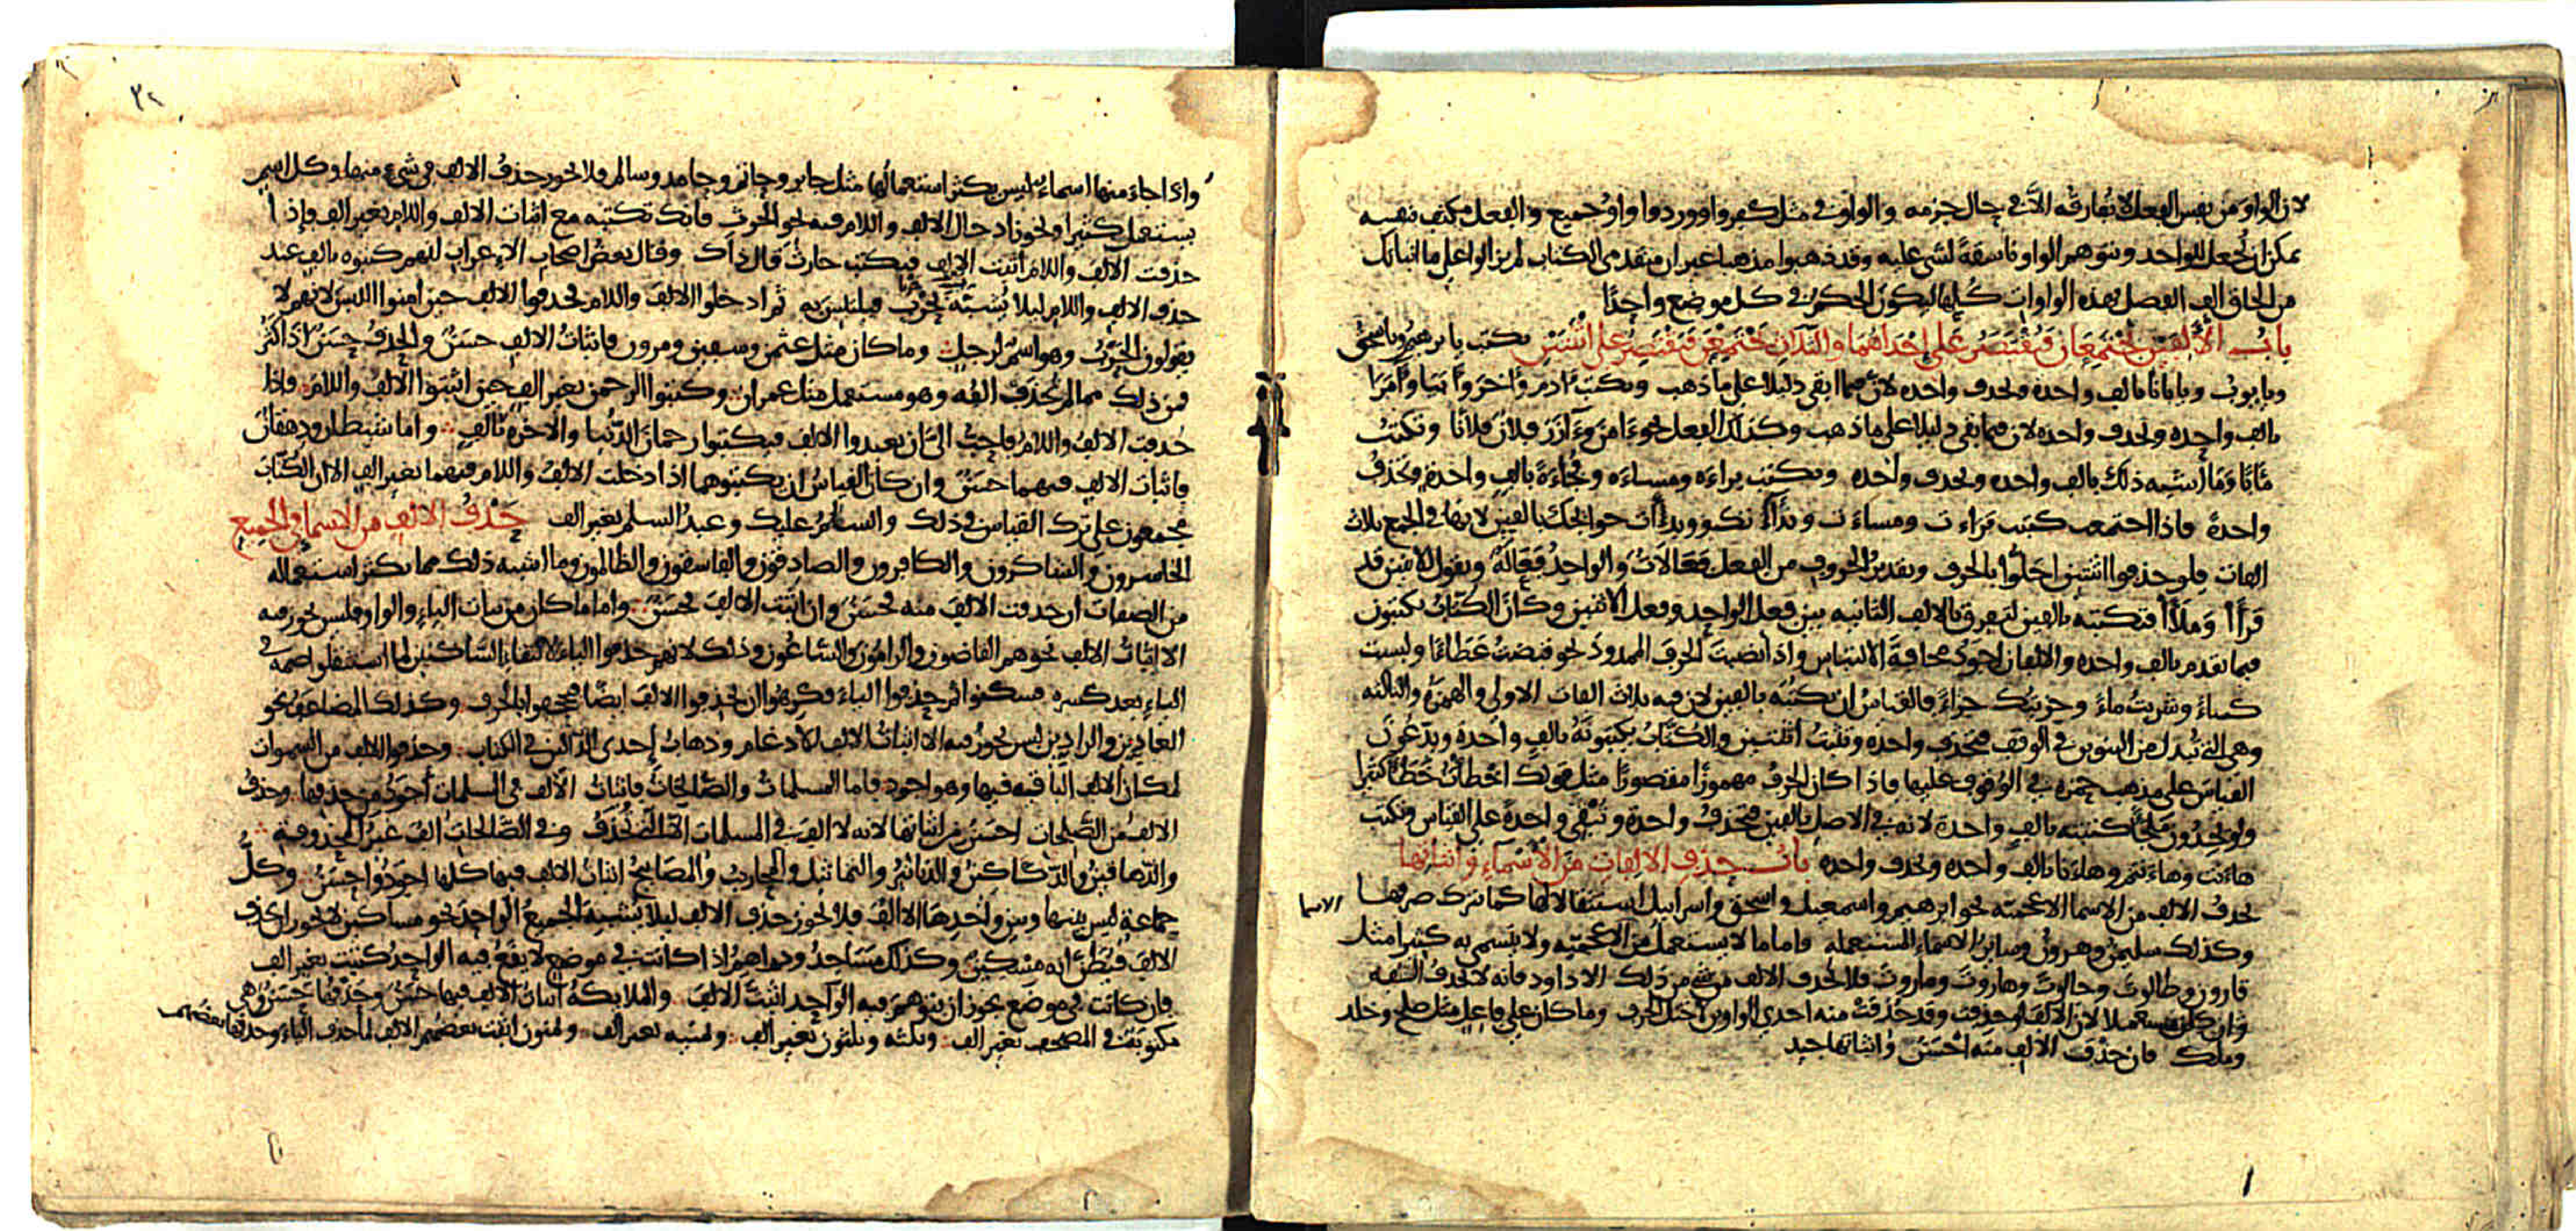 لان الواو من نفس الفعل لا تفارقه الا فى حال جزمه والواو فى مثل كفروا ووردوا واو جميع والفعل مكتف بنفسه
يمكن ان يجعل للواحد وتتوهم الواو ناسقة لشى عليه وقد ذهبوا مذهبا غير ان متقدمى الكتاب لم يزالوا على ما انباتك
من الحاق الف الفصل بهذه الواوات كلها ليكون الحكم فى كل موضع واحدا
باب الالفين تجتمعان فيقتصر على احداهما والثلاث يجتمعن فيقتصر على اثنتين تكتب يا برهيم ويا سحق
ويا يوب ويا بانا بالف واحده وتحذف واحده لان فيما ابقى دليلا على ما ذهب وتكتب ءادم وءاخر وءامرا
بالف واحده وتحذف واحده لان فيما بقى دليلا على ما ذهب وكذلك الفعل نحو ءامن وءازر فلان فلانا وتكتب
مابا وما اشبه ذلك بالف واحده وتحذف واحده وتكتب براءه ومساءه وفجاءة بالف واحدة وتحذف
واحدة فاذا اجتمعت كتبت براءات ومساءات وبداآت حوائجك بالفين لانها فى الجمع ثلاث
الفات فلو حذفوا اثنتين اخلوا بالحرف وتقدير الحروف من الفعل فعالات والواحد فعالة وتقول للاثنين قد
قرأا وملأا فتكتبه بالفين لتفرق بالالف الثانيه بين فعل الواحد وفعل الاثنين وكان الكتاب يكتبون
فيما تقدم بالف واحده والالفان اجود مخافة الالتباس واذا نصبت الحرف الممدود نحو قبضت عطاءا ولبست
كساءً وشربت ماءً وجزيتك جزاءً فالقياس ان تكتبه بالفين لان فيه ثلاث الفات الاولى والهمزة والثالثه
وهى التى تبدل من التنوين فى الوقف فتحذف واحده وتثبت اثنتين والكتاب يكتبونه بالف واحده ويدعون
القياس على مذهب حمزه فى الوقوف عليها فاذا كان الحرف مهموزا مقصورا مثل قولك اخطات خطأ كثيرا
ولو يجدون ملجأ كتبته بالف واحدة لانه فى الاصل بالفين فتحذف واحدة وتبقى واحدة على القياس وتكتب
هاءنت وهاءنتم وهاءنا بالف واحده وتحذف واحده باب حذف الالفات من الاسماء واثباتها
تحذف الالف من الاسما الاعجميه نحو ابرهيم واسمعيل واسحق واسراييل استثقالا لها كما ترك صرفها
الاسما
وكذلك سليمن وهرون وساير الاسماء المستعمله فاما ما لا يستعمل من الاعجميه ولا يتسمى به كثيرا مثل
قارون وطالوت وجالوت وهاروت وماروت فلا تحذف الالف من شى من ذلك الا داود فانه لا تحذف الفه
وان كان مستعملا لان الالف لو حذفت وقد حذفت منه احدى الواوين اختل الحرف وما كان على فاعل مثل صلح وخلد
وملك فان حذف الالف منه احسن واثباتها جيد
٣٢
واذا جاءَ منها اسماءٌ ليس يكثر استعمالها مثل جابر وحاتم وحامد وسالم فلا يجوز حذف الالف فى شىء منها وكل اسم
يستعمل كثيرا ويجوز ادخال الالف واللام فيه نحو الحرث فانك تكتبه مع اثبات الالف واللام بغير الف فاذا
حذفت الالف واللام اثبت الالف فيكتب حارث قال ذاك وقال بعض اصحاب الاعراب انهم كتبوه بالف عند
حذف الالف واللام ليلا يشبه حرب فيلتبس به ثم ادخلوا الالف واللام فحذفوا الالف حين امنوا اللبس لانهم لا
يقولون الحرب وهو اسم لرجل وما كان مثل عثمن وسفين ومرون فاثبات الالف حسنٌ والحذف حسنٌ اذا كثر
فمن ذلك مما لم تحذف الفه وهو مستعمل مثل عمران وكتبوا الرحمن بغير الف حين اثبتوا الالف واللام واذا
حذفت الالف واللام فاحب الىّ ان يعيدوا الالف فيكتبوا رحمان الدنيا والاخره بالف واما شيطان ودهقان
فاثبات الالف فيهما حسنٌ وان كان القياس ان يكتبوهما اذا دخلت الالف واللام فيهما بغير الف الا ان الكتاب
مجمعون على ترك القياس فى ذلك والسلم عليك وعبد السلم بغير الف حذف الالف من الاسما فى الجميع
الخاسرون والشاكرون والكافرون والصادقون والفاسقون والظالمون وما اشبه ذلك مما يكثر استعماله
من الصفات ان حذفت الالف منه فحسنٌ وان اثبت الالف فحسنٌ واما ما كان من بنات الياء والواو فليس يجوز فيه
الا اثبات الالف نحو هم القاضون والرامون والساعون وذلك لانهم حذفوا الياء لالتقاء الساكنين لما استثقلوا ضمة فى
الياء بعد كسره فسكنوا ثم حذفوا الياء فكرهوا ان يحذفوا الالف ايضا فيجحفوا بالحرف وكذلك المضاعف نحو
العادين والرادين ليس يجوز فيه الا اثبات الالف للادغام وذهاب احدى الدالين فى الكتاب وحذفوا الالف من السموات
لمكان الالف الباقيه فيها وهو اجود فاما المسلمات والصالحات فاثبات الالف فى المسلمات أجود من حذفها وحذف
الالف من الصلحات احسن من اثباتها لانه لا الف فى المسلمات الا التى تحذف وفى الصالحات الف غير المحذوفة
والدهاقين والدكاكين والدنانير والتماثيل والمحاريب والمصابيح اثبات الالف فيها كلها اجود واحسن وكل
جماعة ليس بينها وبين واحدها الا الالف فلا يجوز حذف الالف ليلا يشبه الجميع الواحد نحو مساكين لا يجوز ان تحذف
الالف فيظن انه مسكين وكذلك مساجد ودراهم اذا كانت فى موضع لا يقع فيه الواحد كتبت بغير الف
فان كانت فى موضع يجوز ان يتوهم فيه الواحد اثبت الالف والملايكة اثبات الالف فيها حسنٌ وحذفها حسنٌ وهى
مكتوبة فى المصحف بغير الف وثلثه وثلثون بغير الف وثمنيه بغير الف وثمنون اثبت بعضهم الالف لما حذف الياء وحذفها بعضهم